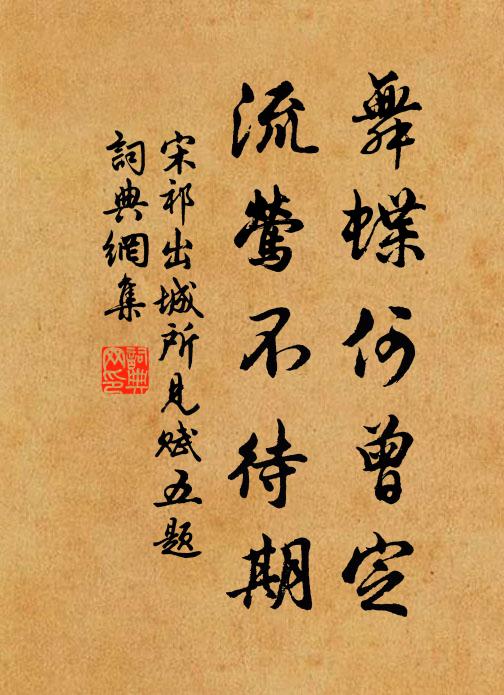 舞蝶何曾定
流莺不待期
宋祁出城所見賦五題
詞典網集
詞典网印